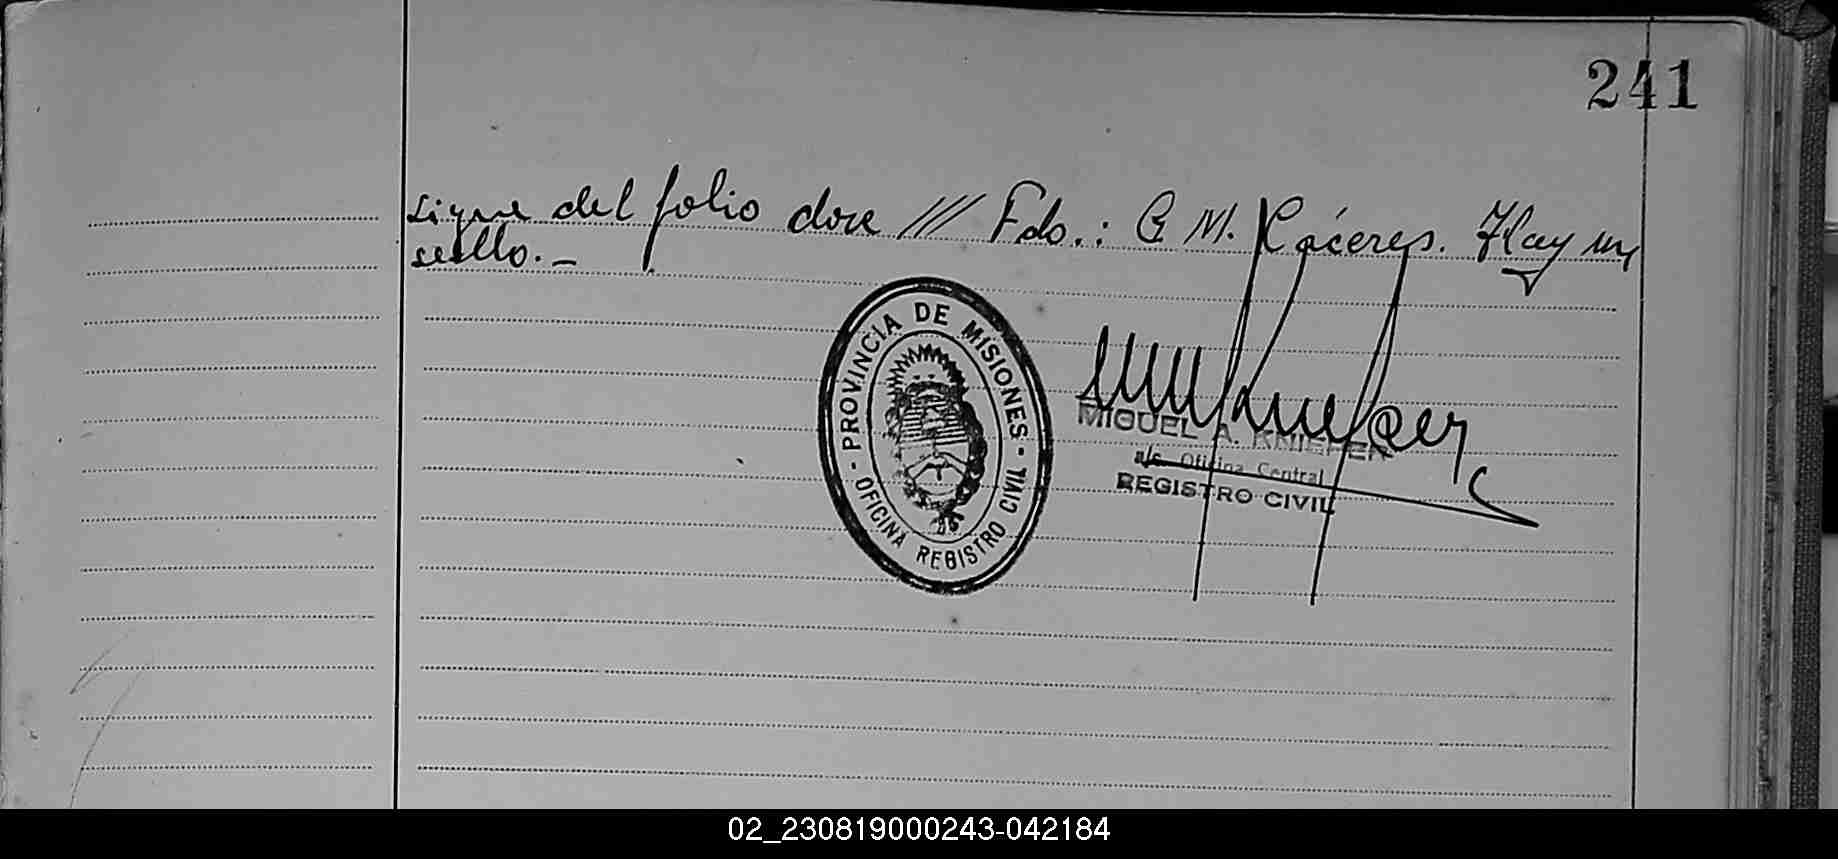 241
Sigue del folio doce /// Fdo.: G. M. Cáceres. Hay un
sello. _
PROVINCIA DE MISIONES
OFICINA REGISTRO CIVIL
MIGUEL A. KNIEFER
a/c. Oficina Central
REGISTRO CIVIL
02_230819000243-042184